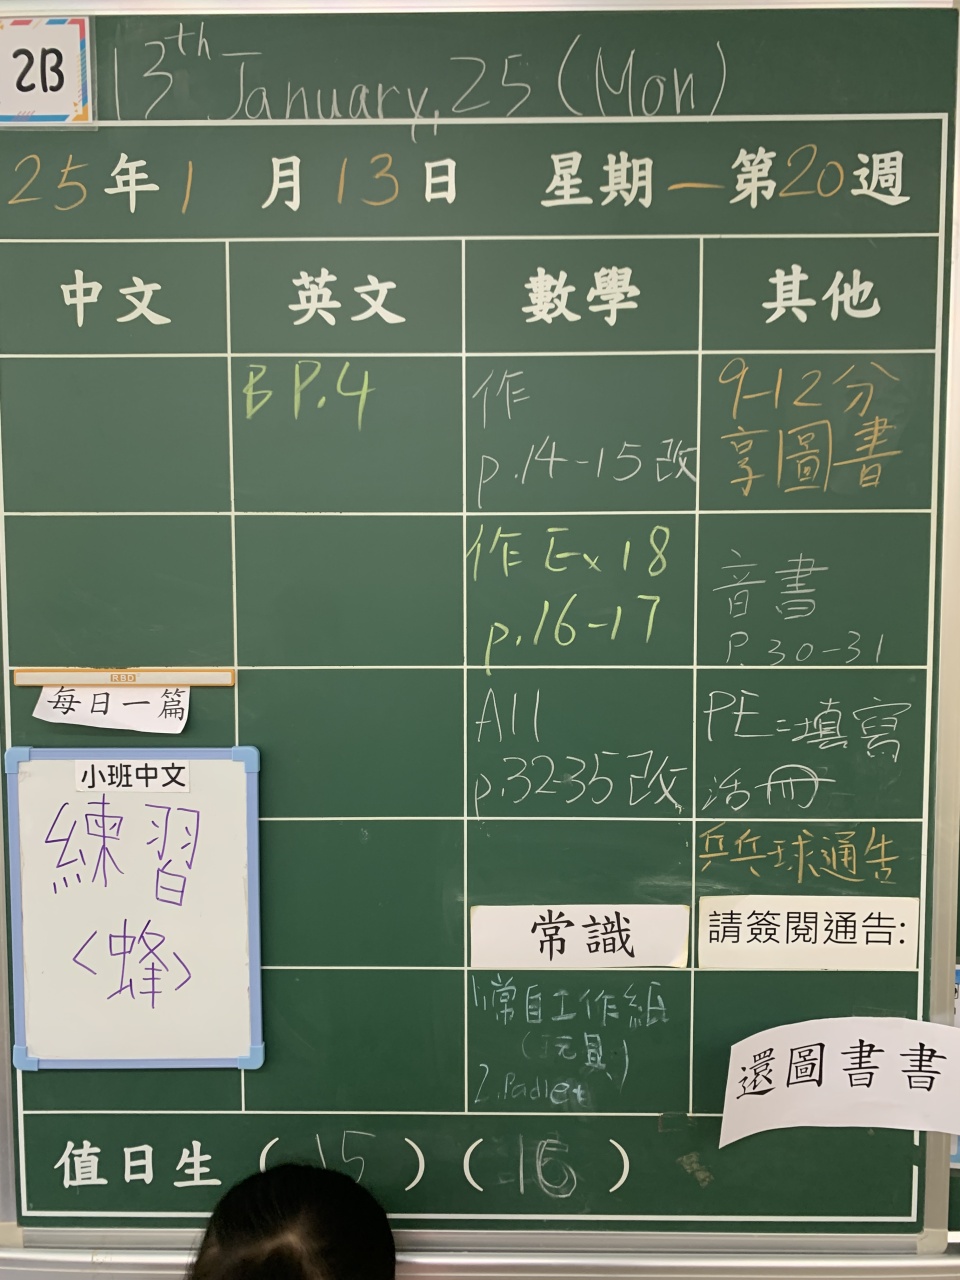 2B
13th January, 25 (Mon)
25年1月13日 星期一 第20週
中文 英文 數學 其他
B P.4
作
p.14-15 改
9-12分
享圖書
作 Ex 18
p.16-17
音書
P.30-31
RBD
每日一篇
小班中文
練習
<蜂>
All
p.32-35 改
PE=填寫
活冊
乒乓球通告
常識
請簽閱通告:
1.常自工作紙
(玩具)
2.Padlet
還圖書書
值日生 (15) (16)